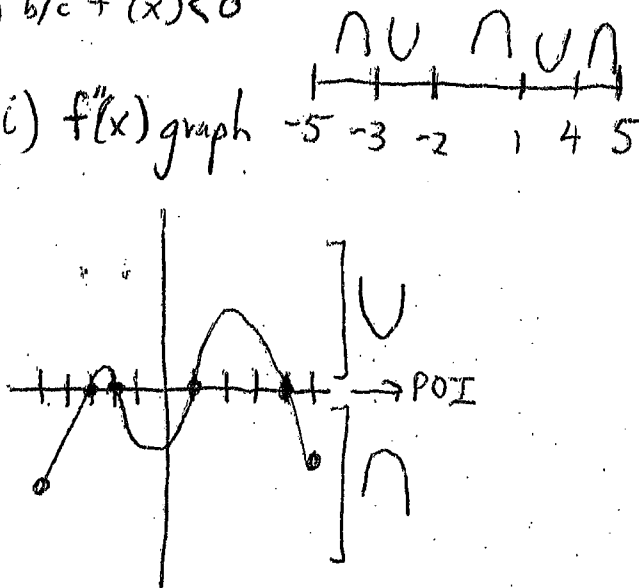 b/c f'(x)<0
i) f"(x) graph
-5 -3 -2 1 4 5
→ POI